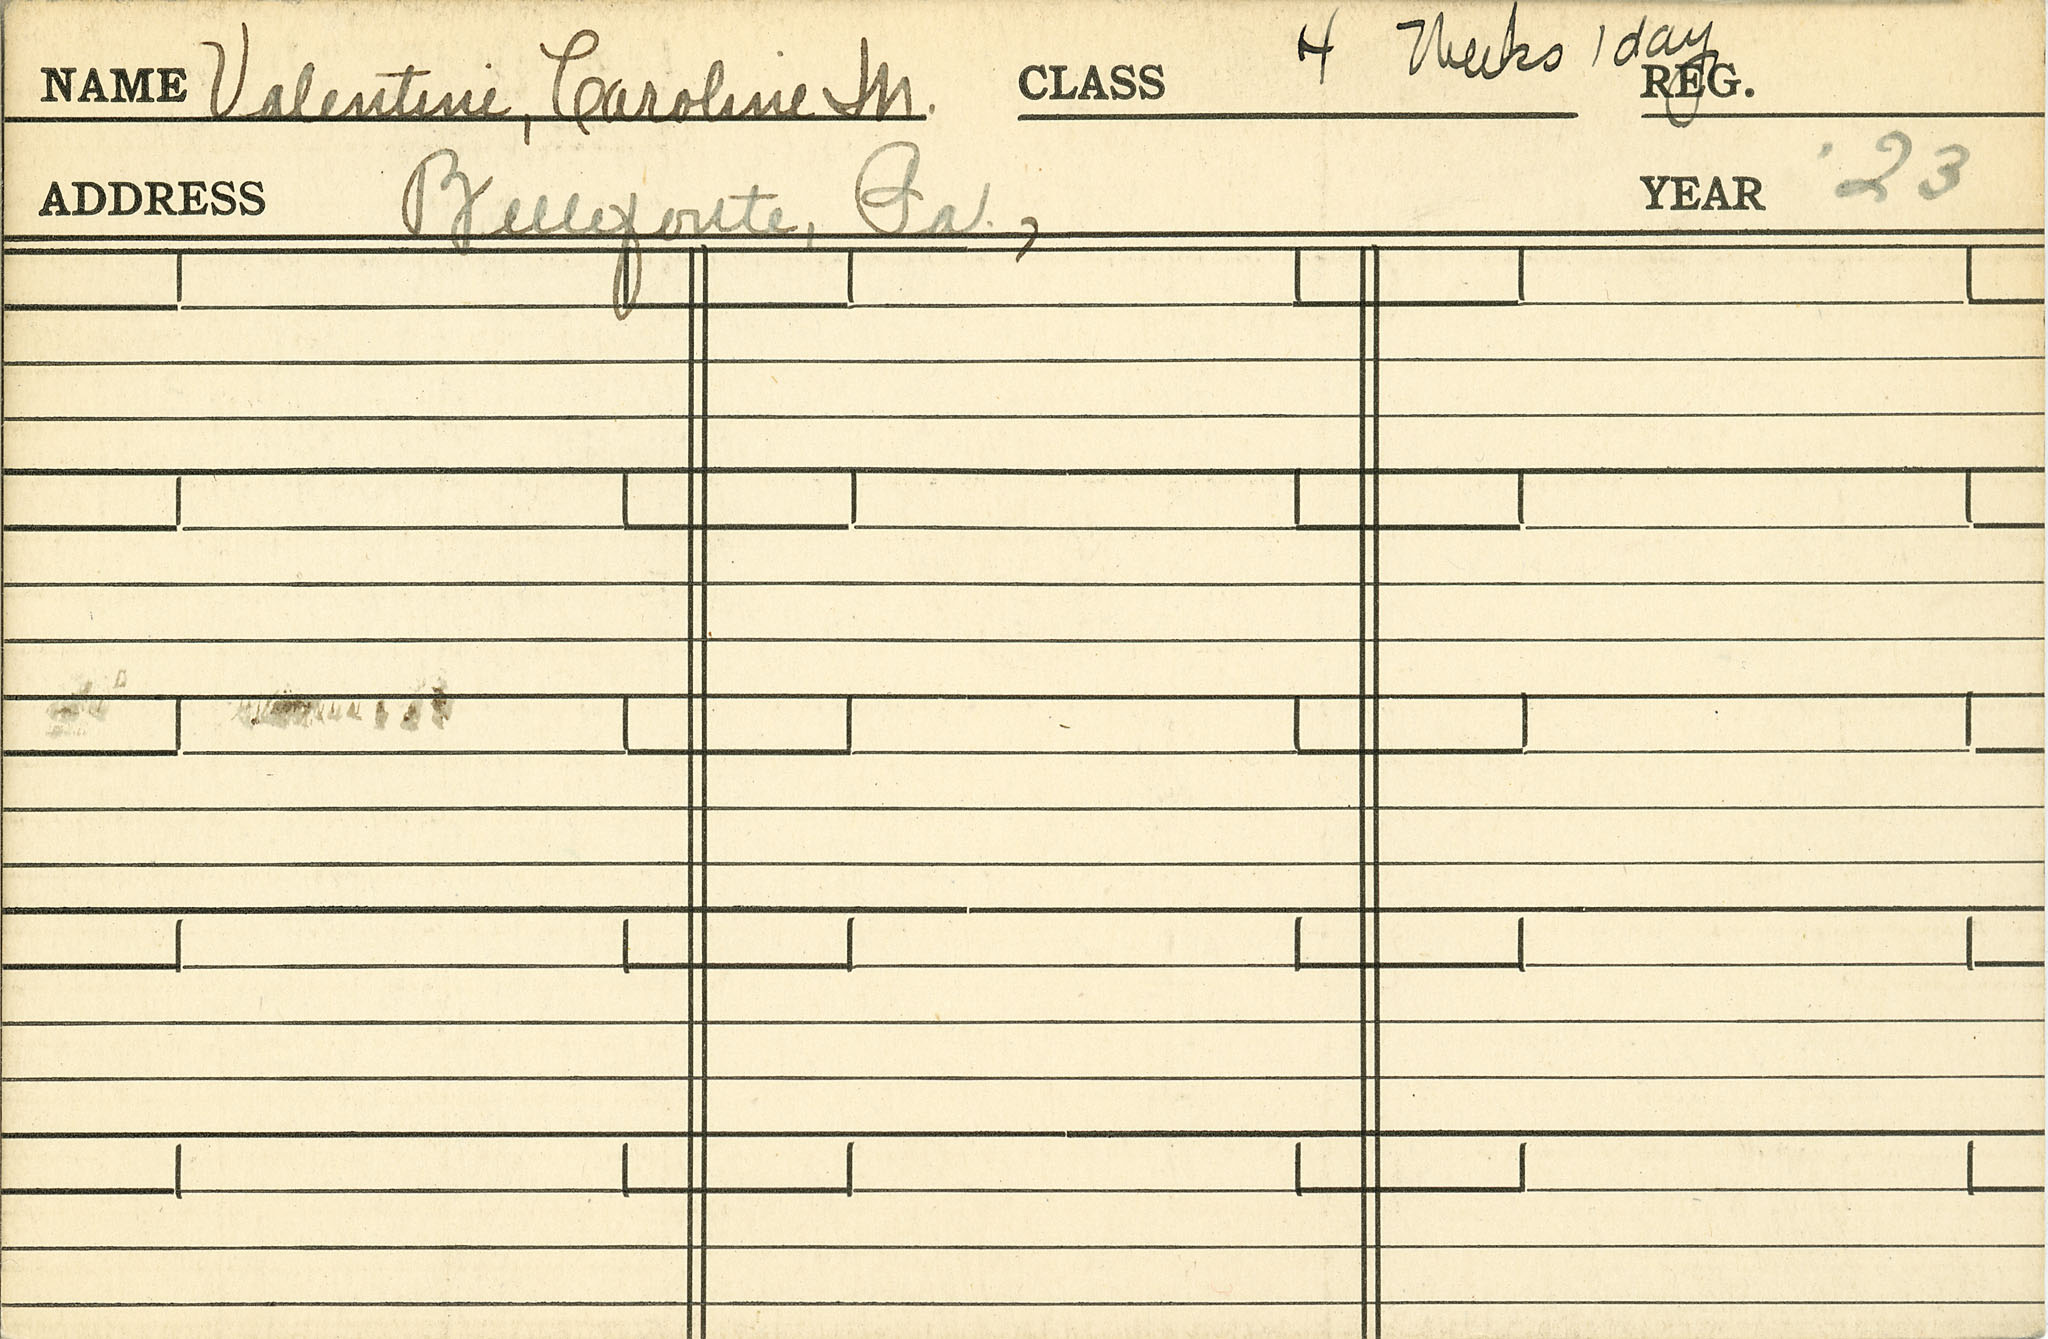 NAME Valentine, Caroline M. CLASS 4 Weeks 1 day REG.
ADDRESS Bellefonte, Pa., YEAR '23